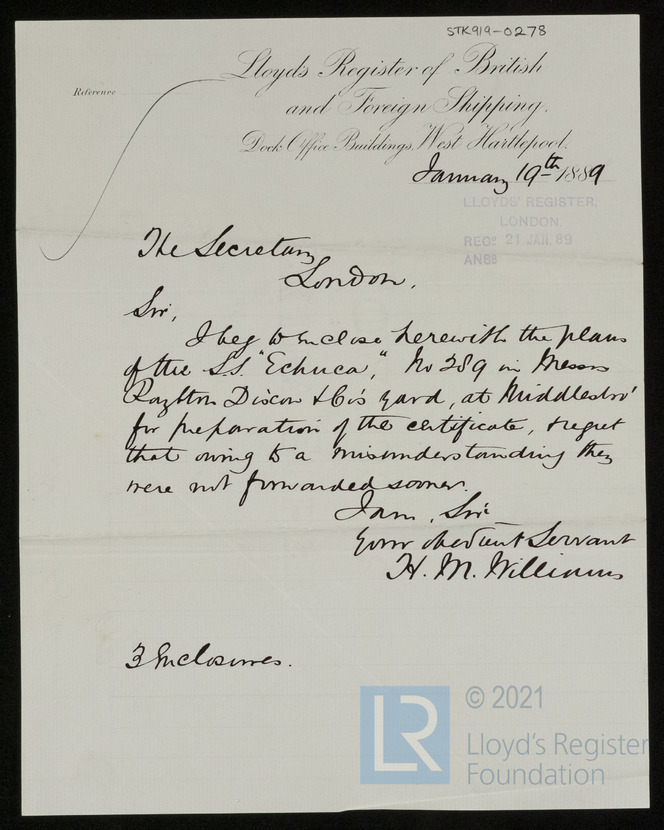 STK919-0278
Lloyd's Register of British
Reference
and Foreign Shipping.
Dock Office Buildings, West Hartlepool.
January 19th 1889
LLOYDS' REGISTER,
LONDON.
RECD 21 JAN. 89
ANSD
The Secretary
London.
Sir,
I beg to enclose herewith the plans
of the S.S. "Echuca," No 289 in Messrs
Raylton Dixon & Co's yard, at Middlesbro'
for preparation of the certificate, & regret
that owing to a misunderstanding they
were not forwarded sooner.
I am, Sir
Your obedient Servant
H. M. Williams
3 Enclosures.
LR
© 2021
Lloyd's Register
Foundation